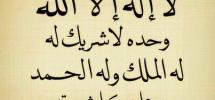 لا إله إلا الله
وحده لا شريك له
له الملك وله الحمد